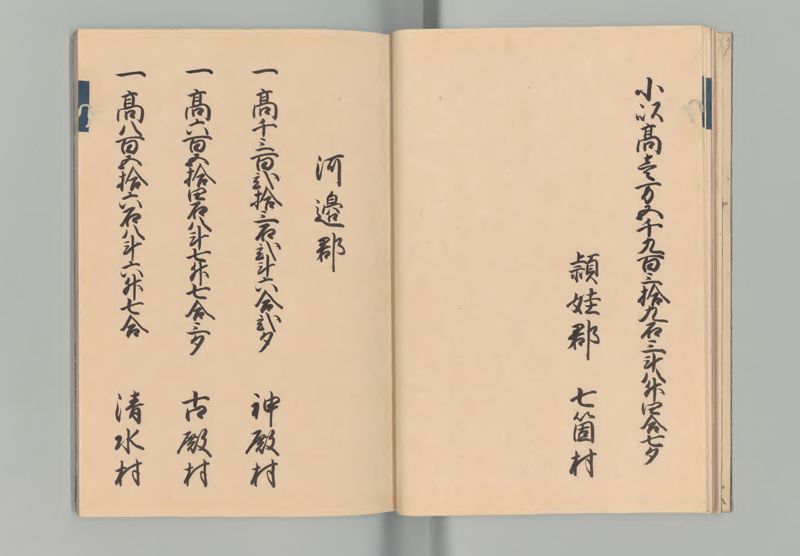 小以高壱万五千九百三拾九石三斗八升四合七夕
頴娃郡　七箇村
河邊郡
一高千三百弐拾三石弐斗六合弐夕　神殿村
一高六百五拾四石八斗七升七合三夕　古殿村
一高八百五拾六石八斗六升七合　清水村